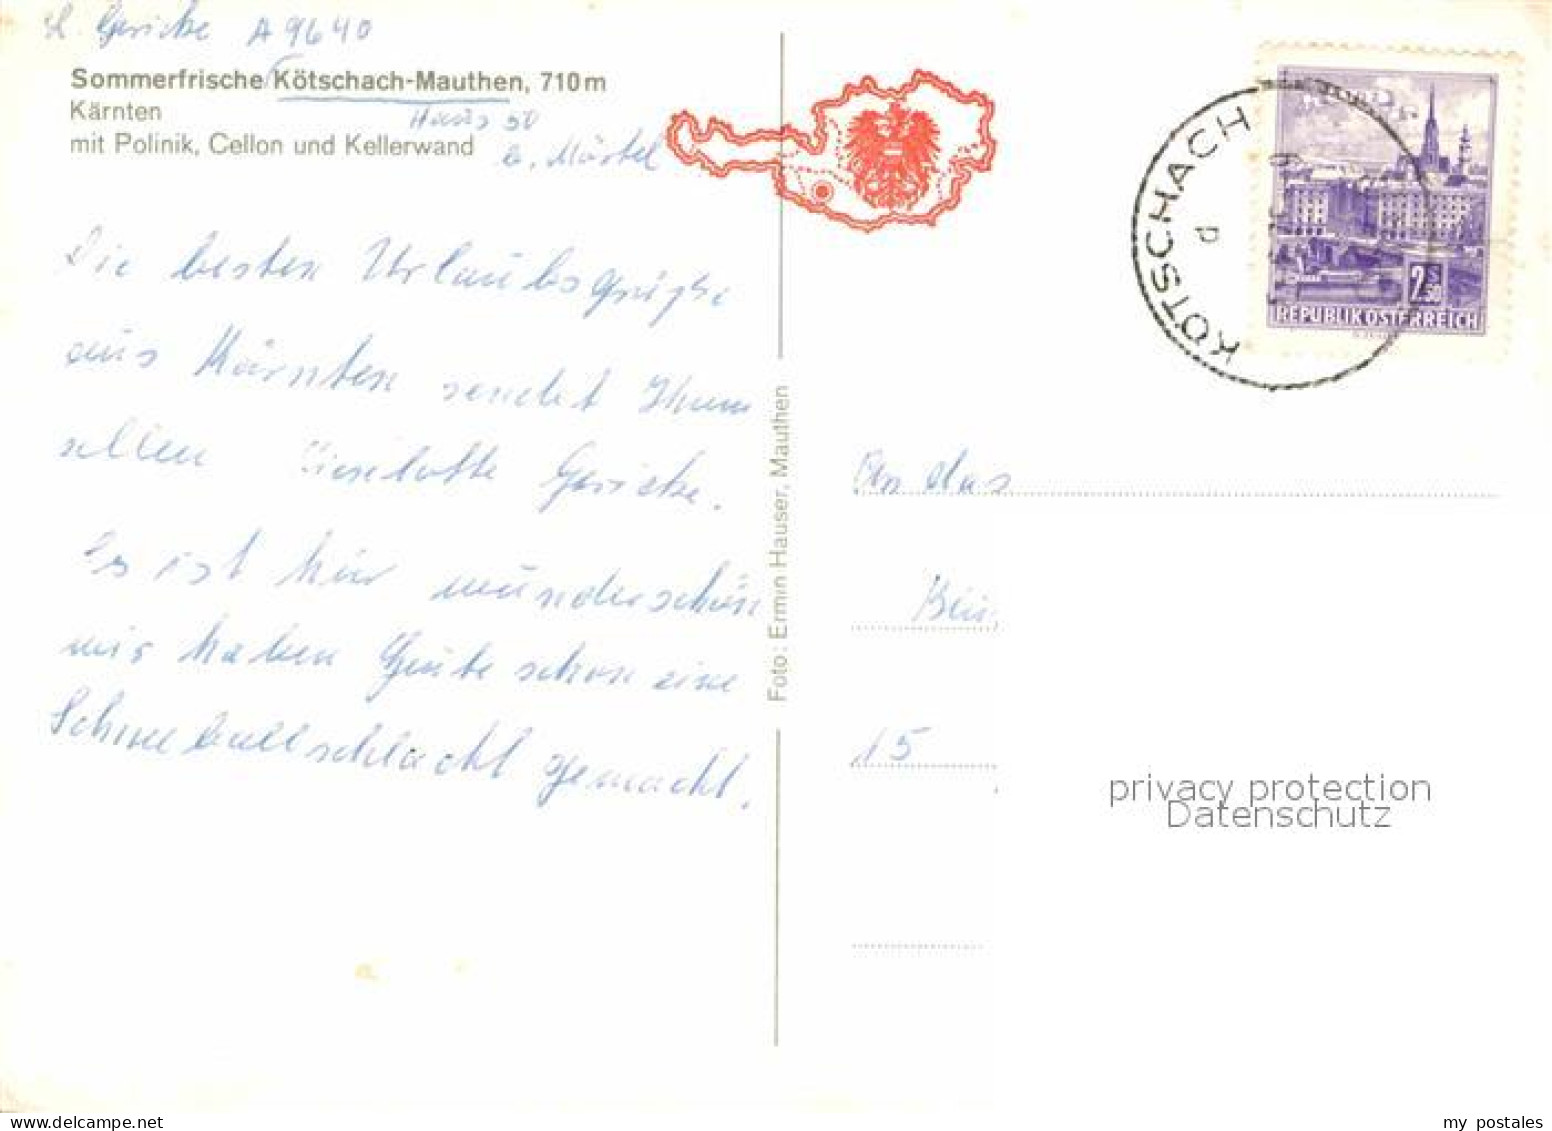 L. Gericke A 9640
Sommerfrische Kötschach-Mauthen, 710 m
Kärnten
Haus 50
mit Polinik, Cellon und Kellerwand
b. Mörtel
Die besten Urlaubsgrüße
aus Kärnten sendet Ihnen
allen Lieselotte Gericke.
Es ist hier wunderschön
wir haben heute schon eine
Schneeballschlacht gemacht.
Foto: Ermin Hauser, Mauthen
KÖTSCHACH
d
2.50 S
REPUBLIK ÖSTERREICH
An das
15
privacy protection
Datenschutz
my postales